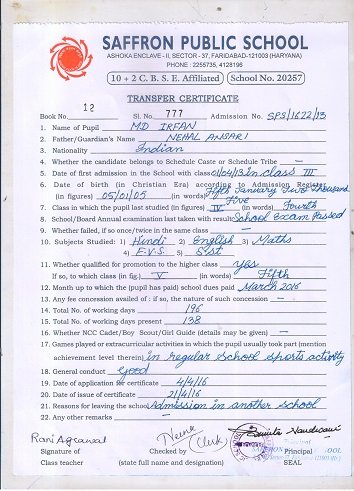 SAFFRON PUBLIC SCHOOL
ASHOKA ENCLAVE - II, SECTOR - 37, FARIDABAD-121003 (HARYANA)
PHONE : 2255735, 4128196
10 + 2 C. B. S. E. Affiliated School No. 20257
TRANSFER CERTIFICATE
Book No. 12 Sl. No. 777 Admission No. SPS/1622/13
1. Name of Pupil MD IRFAN
2. Father/Guardian's Name NEHAL ANSARI
3. Nationality Indian
4. Whether the candidate belongs to Schedule Caste or Schedule Tribe —
5. Date of first admission in the School with class 01/04/13 in class III
6. Date of birth (in Christian Era) according to Admission Register
(in figures) 05/01/05 (in words) Fifth January Two thousand Five
7. Class in which the pupil last studied (in figures) IV (in words) Fourth
8. School/Board Annual examination last taken with result School Exam Passed
9. Whether failed, if so once/twice in the same class —
10. Subjects Studied: 1) Hindi 2) English 3) Maths
4) E.V.S 5) S.st
11. Whether qualified for promotion to the higher class yes
If so, to which class (in fig.) V (in words) Fifth
12. Month up to which the (pupil has paid) school dues paid March 2016
13. Any fee concession availed of : if so, the nature of such concession —
14. Total No. of working days 196
15. Total No. of working days present 138
16. Whether NCC Cadet/Boy Scout/Girl Guide (details may be given) —
17. Games played or extracurricular activities in which the pupil usually took part (mention
achievement level therein) in regular school sports activity
18. General conduct Good
19. Date of application for certificate 4/4/16
20. Date of issue of certificate 21/4/16
21. Reasons for leaving the school Admission in another school
22. Any other remarks —
Rani Agrawal (Clerk)
Signature of Checked by Principal
Class teacher (state full name and designation) SEAL